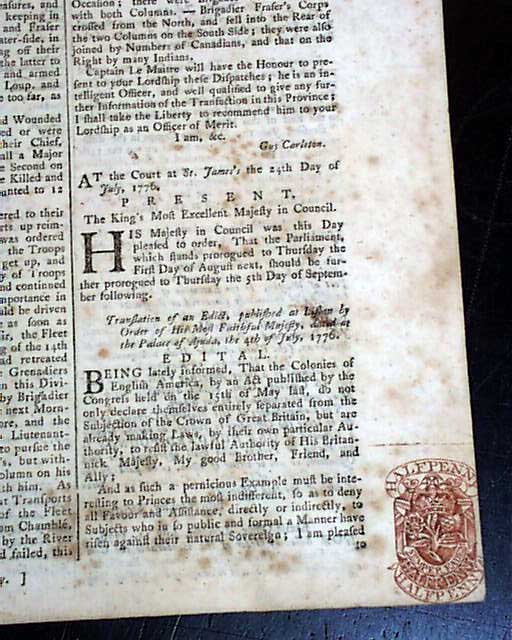 easures, and
keeping in
and Fraser
ater-side, in
ng off their
the latter to
and armed
Loup, and
e too far, as
nd Wounded
ed or were
their Chief,
all a Major
e Second on
e Killed and
ounted to 12
ered to their
rts up reim-
was ordered
the Troops
get up, and
y of Troops
nd continued
mportance in
uld be driven
e as soon as
ir, the Fleet
g of the 14th
ad retreated
e Grenadiers
n this Divi-
by Brigadier
e next Morn-
ore, and the
Lieutenant-
to pursue the
s, but with-
olumn on his
ish him. As
at Transports
of the Fleet
om Chamblé,
by the River
d failed, this
y. ]
with both Columns. — Brigadier Fraser's Corps
crossed from the North, and fell into the Rear of
the two Columns on the South Side; they were also
joined by Numbers of Canadians, and that on the
Right by many Indians.
Captain Le Maitre will have the Honour to pre-
sent to your Lordship these Dispatches; he is an in-
telligent Officer, and well qualified to give any fur-
ther Information of the Transaction in this Province;
I shall take the Liberty to recommend him to your
Lordship as an Officer of Merit.
I am, &c.
Guy Carleton.
AT the Court at St. James's the 24th Day of
July, 1776.
PRESENT,
The King's Most Excellent Majesty in Council.
HIS Majesty in Council was this Day
pleased to order, That the Parliament,
which stands prorogued to Thursday the
First Day of August next, should be fur-
ther prorogued to Thursday the 5th Day of Septem-
ber following.
Translation of an Edict, published at Lisbon by
Order of His Most Faithful Majesty, dated at
the Palace of Ajuda, the 4th of July, 1776.
EDITAL.
BEING lately informed, That the Colonies of
English America, by an Act published by the
Congress held on the 15th of May last, do not
only declare themselves entirely separated from the
Subjection of the Crown of Great Britain, but are
already making Laws, by their own particular Au-
thority, to resist the lawful Authority of His Britan-
nick Majesty, My good Brother, Friend, and
Ally;
And as such a pernicious Example must be inte-
resting to Princes the most indifferent, so as to deny
all Favour and Assistance, directly or indirectly, to
Subjects who in so public and formal a Manner have
risen against their natural Sovereign; I am pleased
to
HALFPENNY
HALFPENNY